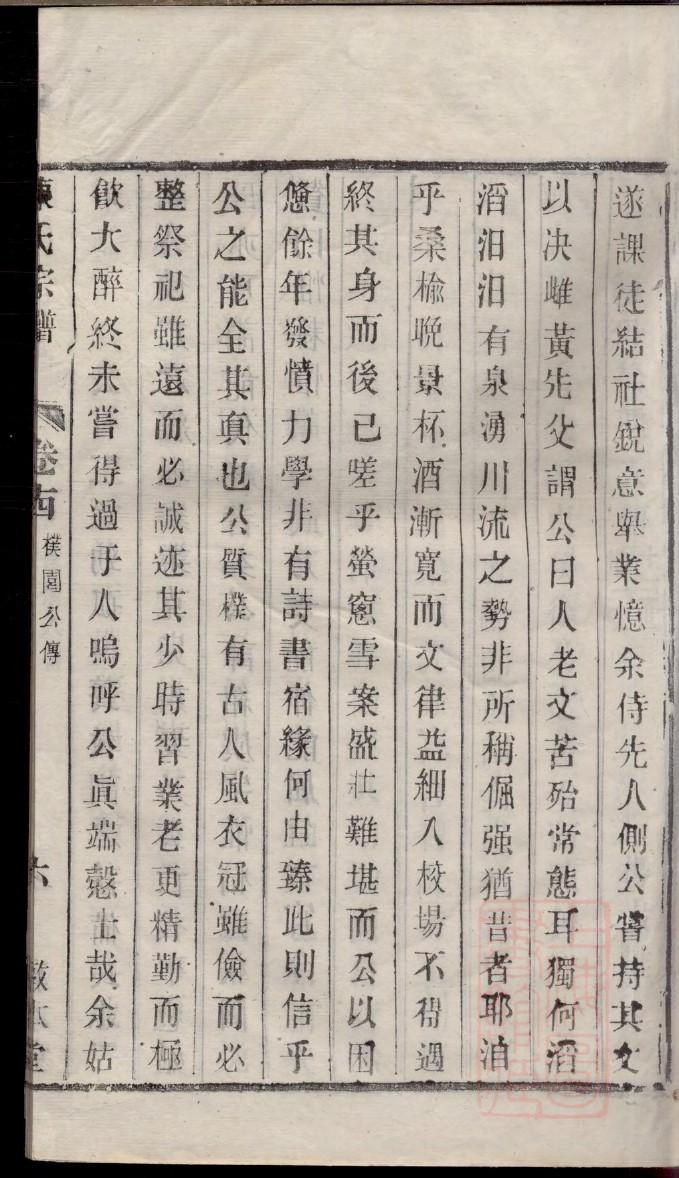 遂課徒結社銳意舉業憶余侍先人側公嘗持其文
以决雌黃先父謂公曰人老文苦殆常態耳獨何滔
滔汨汨有泉湧川流之勢非所稱倔强猶昔者耶洎
乎桑榆晩景杯酒漸寬而文律益細入校場不得遇
終其身而後已嗟乎螢窻雪案盛壯難堪而公以困
憊餘年發憤力學非有詩書宿緣何由臻此則信乎
公之能全其眞也公質樸有古人風衣冠雖儉而必
整祭祀雖遠而必誠迹其少時習業老更精勤而極
飮大醉終未嘗得過于人嗚呼公眞端慤士哉余姑
陳氏宗譜 卷十四 樸園公傳 六 敦本堂